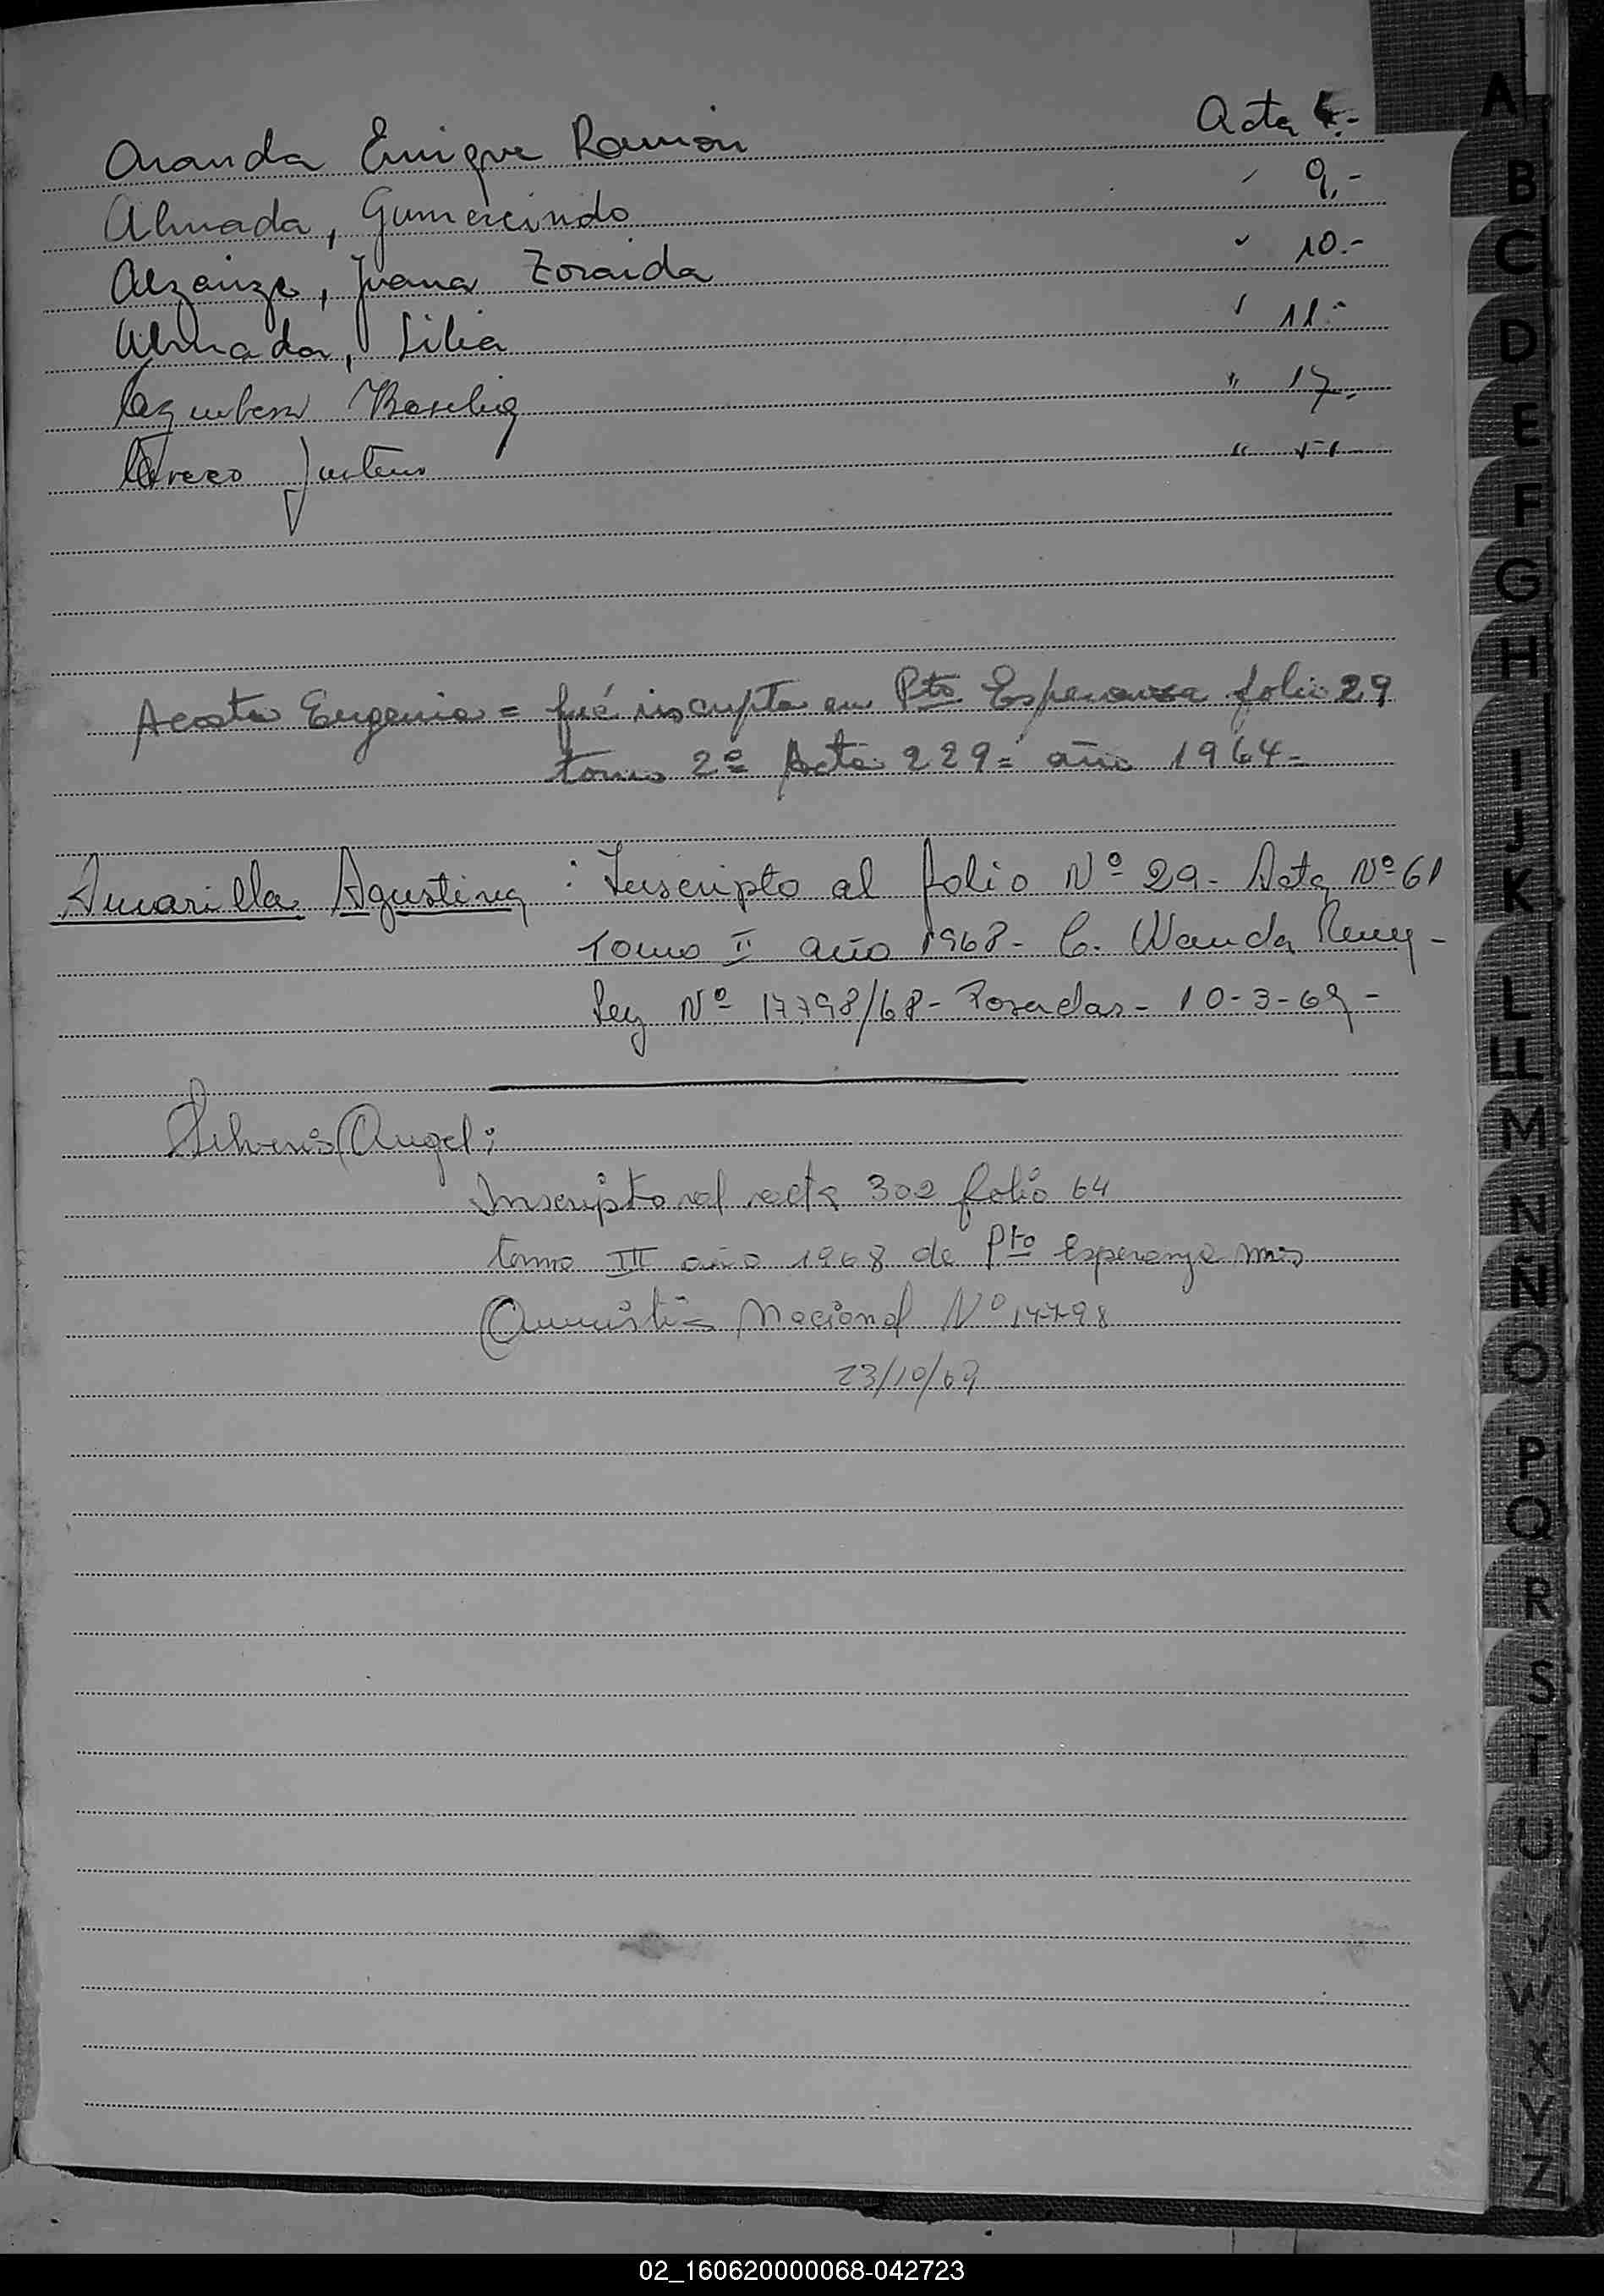 Aranda Enrique Ramón Acta 4.-
Almada, Gumercindo " 9.-
Juana Zoraida " 10.-
Almada, Lilia " 11.-
" 17.-
"
Acosta Eugenia = fué inscripta en Pto Esperanza folio 29
tomo 2º Acta 229 = año 1964 -
Amarilla Agustina : Inscripto al folio Nº 29 - Acta Nº 61
Tomo II año 1968 - C. Wanda
Ley Nº 17798/68 - Posadas - 10-3-69 -
Silverio Angel :
Inscripto al acta 302 folio 64
tomo III año 1968 de Pto Esperanza Mis
Amnistía Nacional Nº 17798
23/10/69
A
B
C
D
E
F
G
H
I
J
K
L
LL
M
N
Ñ
O
P
Q
R
S
T
U
V
W
X
Y
Z
02_160620000068-042723